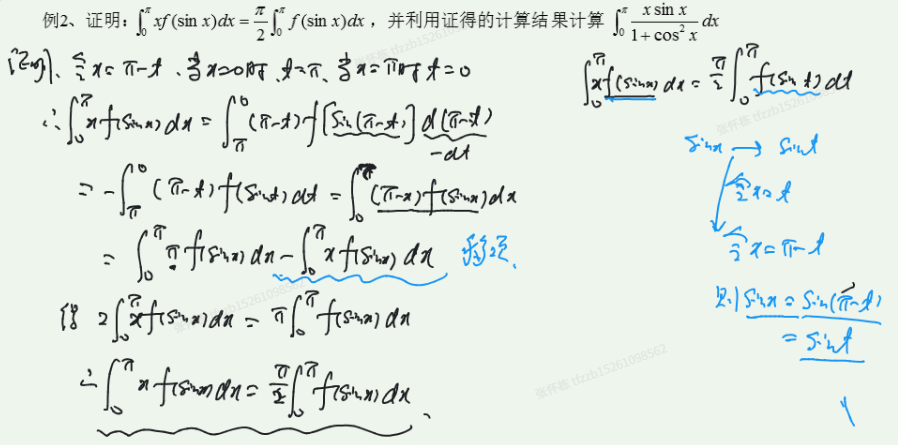 例2、证明：∫₀^π xf(sin x)dx = π/2 ∫₀^π f(sin x)dx，并利用证得的计算结果计算 ∫₀^π x sin x / (1+cos² x) dx
证明、令x=π-t、当x=0时、t=π、当x=π时t=0
∴ ∫₀^π x f(sinx) dx = ∫_π^0 (π-t) f[sin(π-t)] d(π-t)
-dt
= -∫_π^0 (π-t) f(sint) dt = ∫₀^π (π-x) f(sinx) dx
= ∫₀^π π f(sinx) dx - ∫₀^π x f(sinx) dx 移项、
得 2∫₀^π x f(sinx) dx = π∫₀^π f(sinx) dx
∴ ∫₀^π x f(sinx) dx = π/2 ∫₀^π f(sinx) dx.
∫₀^π x f(sinx) dx = π/2 ∫₀^π f(sin t) dt
sinx → sint
令x=t
令x=π-t
则 sinx = sin(π-t)
= sint
张怀栋 tfzzb15261098562